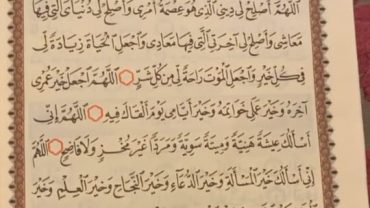 اللَّهُمَّ أَصْلِحْ لِي دِينِي الَّذِي هُوَ عِصْمَةُ أَمْرِي وَأَصْلِحْ لِي دُنْيَايَ الَّتِي فِيهَا
مَعَاشِي وَأَصْلِحْ لِي آخِرَتِي الَّتِي فِيهَا مَعَادِي وَاجْعَلِ الْحَيَاةَ زِيَادَةً لِي
فِي كُلِّ خَيْرٍ وَاجْعَلِ الْمَوْتَ رَاحَةً لِي مِنْ كُلِّ شَرٍّ اللَّهُمَّ اجْعَلْ خَيْرَ عُمْرِي
آخِرَهُ وَخَيْرَ عَمَلِي خَوَاتِمَهُ وَخَيْرَ أَيَّامِي يَوْمَ أَلْقَاكَ فِيهِ اللَّهُمَّ إِنِّي
أَسْأَلُكَ عِيشَةً هَنِيَّةً وَمِيتَةً سَوِيَّةً وَمَرَدًّا غَيْرَ مُخْزٍ وَلَا فَاضِحٍ اللَّهُمَّ
إِنِّي أَسْأَلُكَ خَيْرَ الْمَسْأَلَةِ وَخَيْرَ الدُّعَاءِ وَخَيْرَ النَّجَاحِ وَخَيْرَ الْعِلْمِ وَخَيْرَ